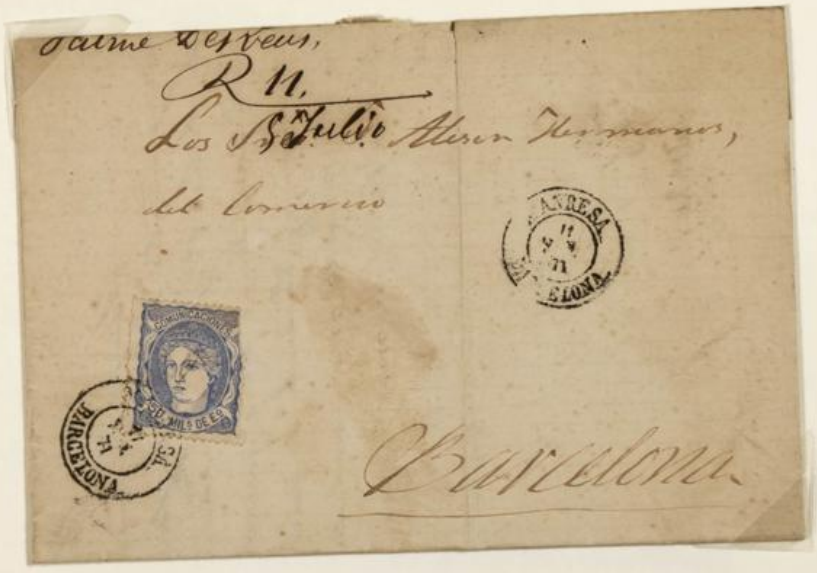 Jaime
R 11.
Julio
Los Hermanos,
del Comercio
MANRESA
11
71
BARCELONA
COMUNICACIONES
50. MILS DE EO
BARCELONA
71
Barcelona